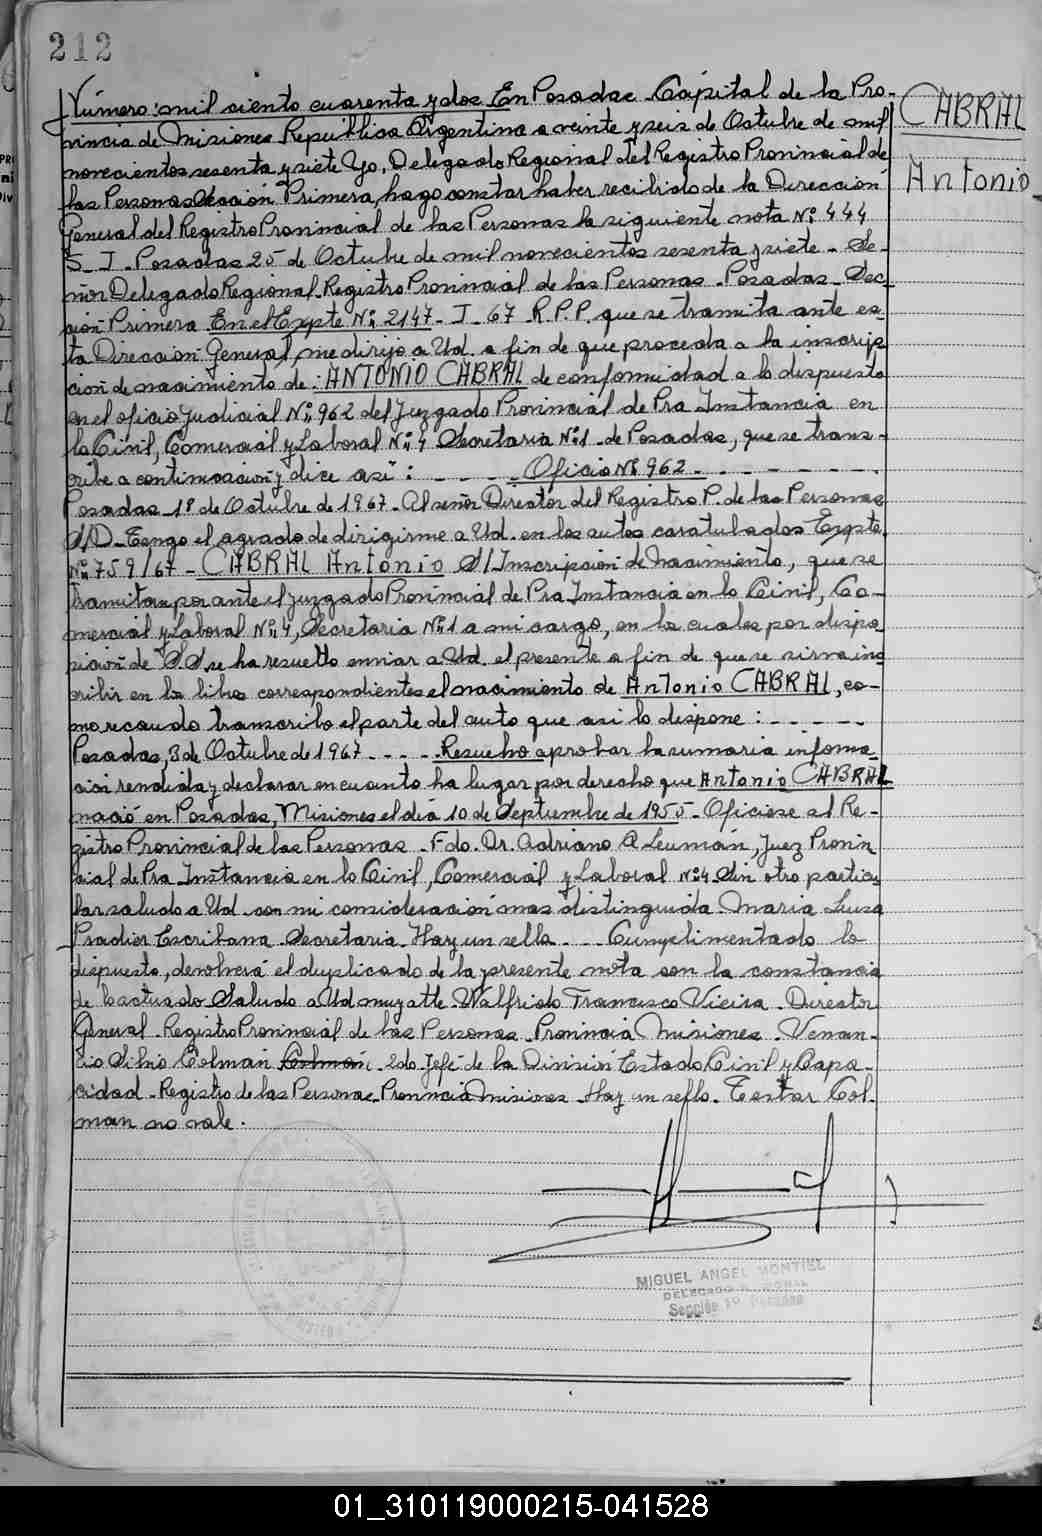 212
CABRAL
Antonio
Número: mil ciento cuarenta y dos En Posadas Capital de la Pro-
vincia de Misiones República Argentina a veinte y seis de Octubre de mil
novecientos sesenta y siete Yo, Delegado Regional del Registro Provincial de
las Personas Sección Primera, hago constar haber recibido de la Dirección
General del Registro Provincial de las Personas la siguiente nota Nº 444
S_I_Posadas 25 de Octubre de mil novecientos sesenta y siete - Se-
ñor Delegado Regional - Registro Provincial de las Personas - Posadas - Sec-
ción Primera En el Expte Nº 2147 - I - 67 R.P.P. que se tramita ante es-
ta Dirección General, me dirijo a Ud. a fin de que proceda a la inscrip-
ción de nacimiento de: ANTONIO CABRAL de conformidad a lo dispuesto
en el oficio judicial Nº 962 del Juzgado Provincial de Pra Instancia en
lo Civil, Comercial y Laboral Nº 4 Secretaria Nº 1 de Posadas, que se trans-
cribe a continuación y dice así: - - - - Oficio Nº 962 - - - - - - -
Posadas 1º de Octubre de 1967 - Al señor Director del Registro P. de las Personas
S/D - Tengo el agrado de dirigirme a Ud. en los autos caratulados Expte.
Nº 759/67 - CABRAL Antonio S/ Inscripción de Nacimiento, que se
tramitan por ante el juzgado Provincial de Pra Instancia en lo Civil, Co-
mercial y Laboral Nº 4, Secretaria Nº 1 a mi cargo, en los cuales por dispo
sición de SS. se ha resuelto enviar a Ud. el presente a fin de que se sirva ins
cribir en los libros correspondientes el nacimiento de Antonio CABRAL, co-
mo recaudo transcribo el parte del auto que asi lo dispone: - - - - -
Posadas, 3 de Octubre de 1967 - - - - Resuelvo aprobar la sumaria informa
ción rendida y declarar en cuanto ha lugar por derecho que Antonio CABRAL
nació en Posadas, Misiones el día 10 de Septiembre de 1955 - Oficiese al Re-
gistro Provincial de las Personas - Fdo. Dr. Adriano A Leumán, Juez Provin
cial de Pra Instancia en lo Civil, Comercial y Laboral Nº 4 Sin otro particu
lar saludo a Ud con mi consideración mas distinguida - Maria Luisa
Pradier Escribana Secretaria - Hay un sello - - - Cumplimentado lo
dispuesto, devolverá el duplicado de la presente nota con la constancia
de lo actuado Saludo a Ud muy atte. Walfrido Francisco Vieira - Director
General - Registro Provincial de las Personas - Provincia Misiones - Venan-
cio Silvio Colman Colman 2do Jefe de la División Estado Civil y Capa-
cidad - Registro de las Personas - Provincia Misiones - Hay un sello. Testar Col-
man no vale.
MIGUEL ANGEL MONTIEL
DELEGADO REGIONAL
Sección 1º Posadas
01_310119000215-041528